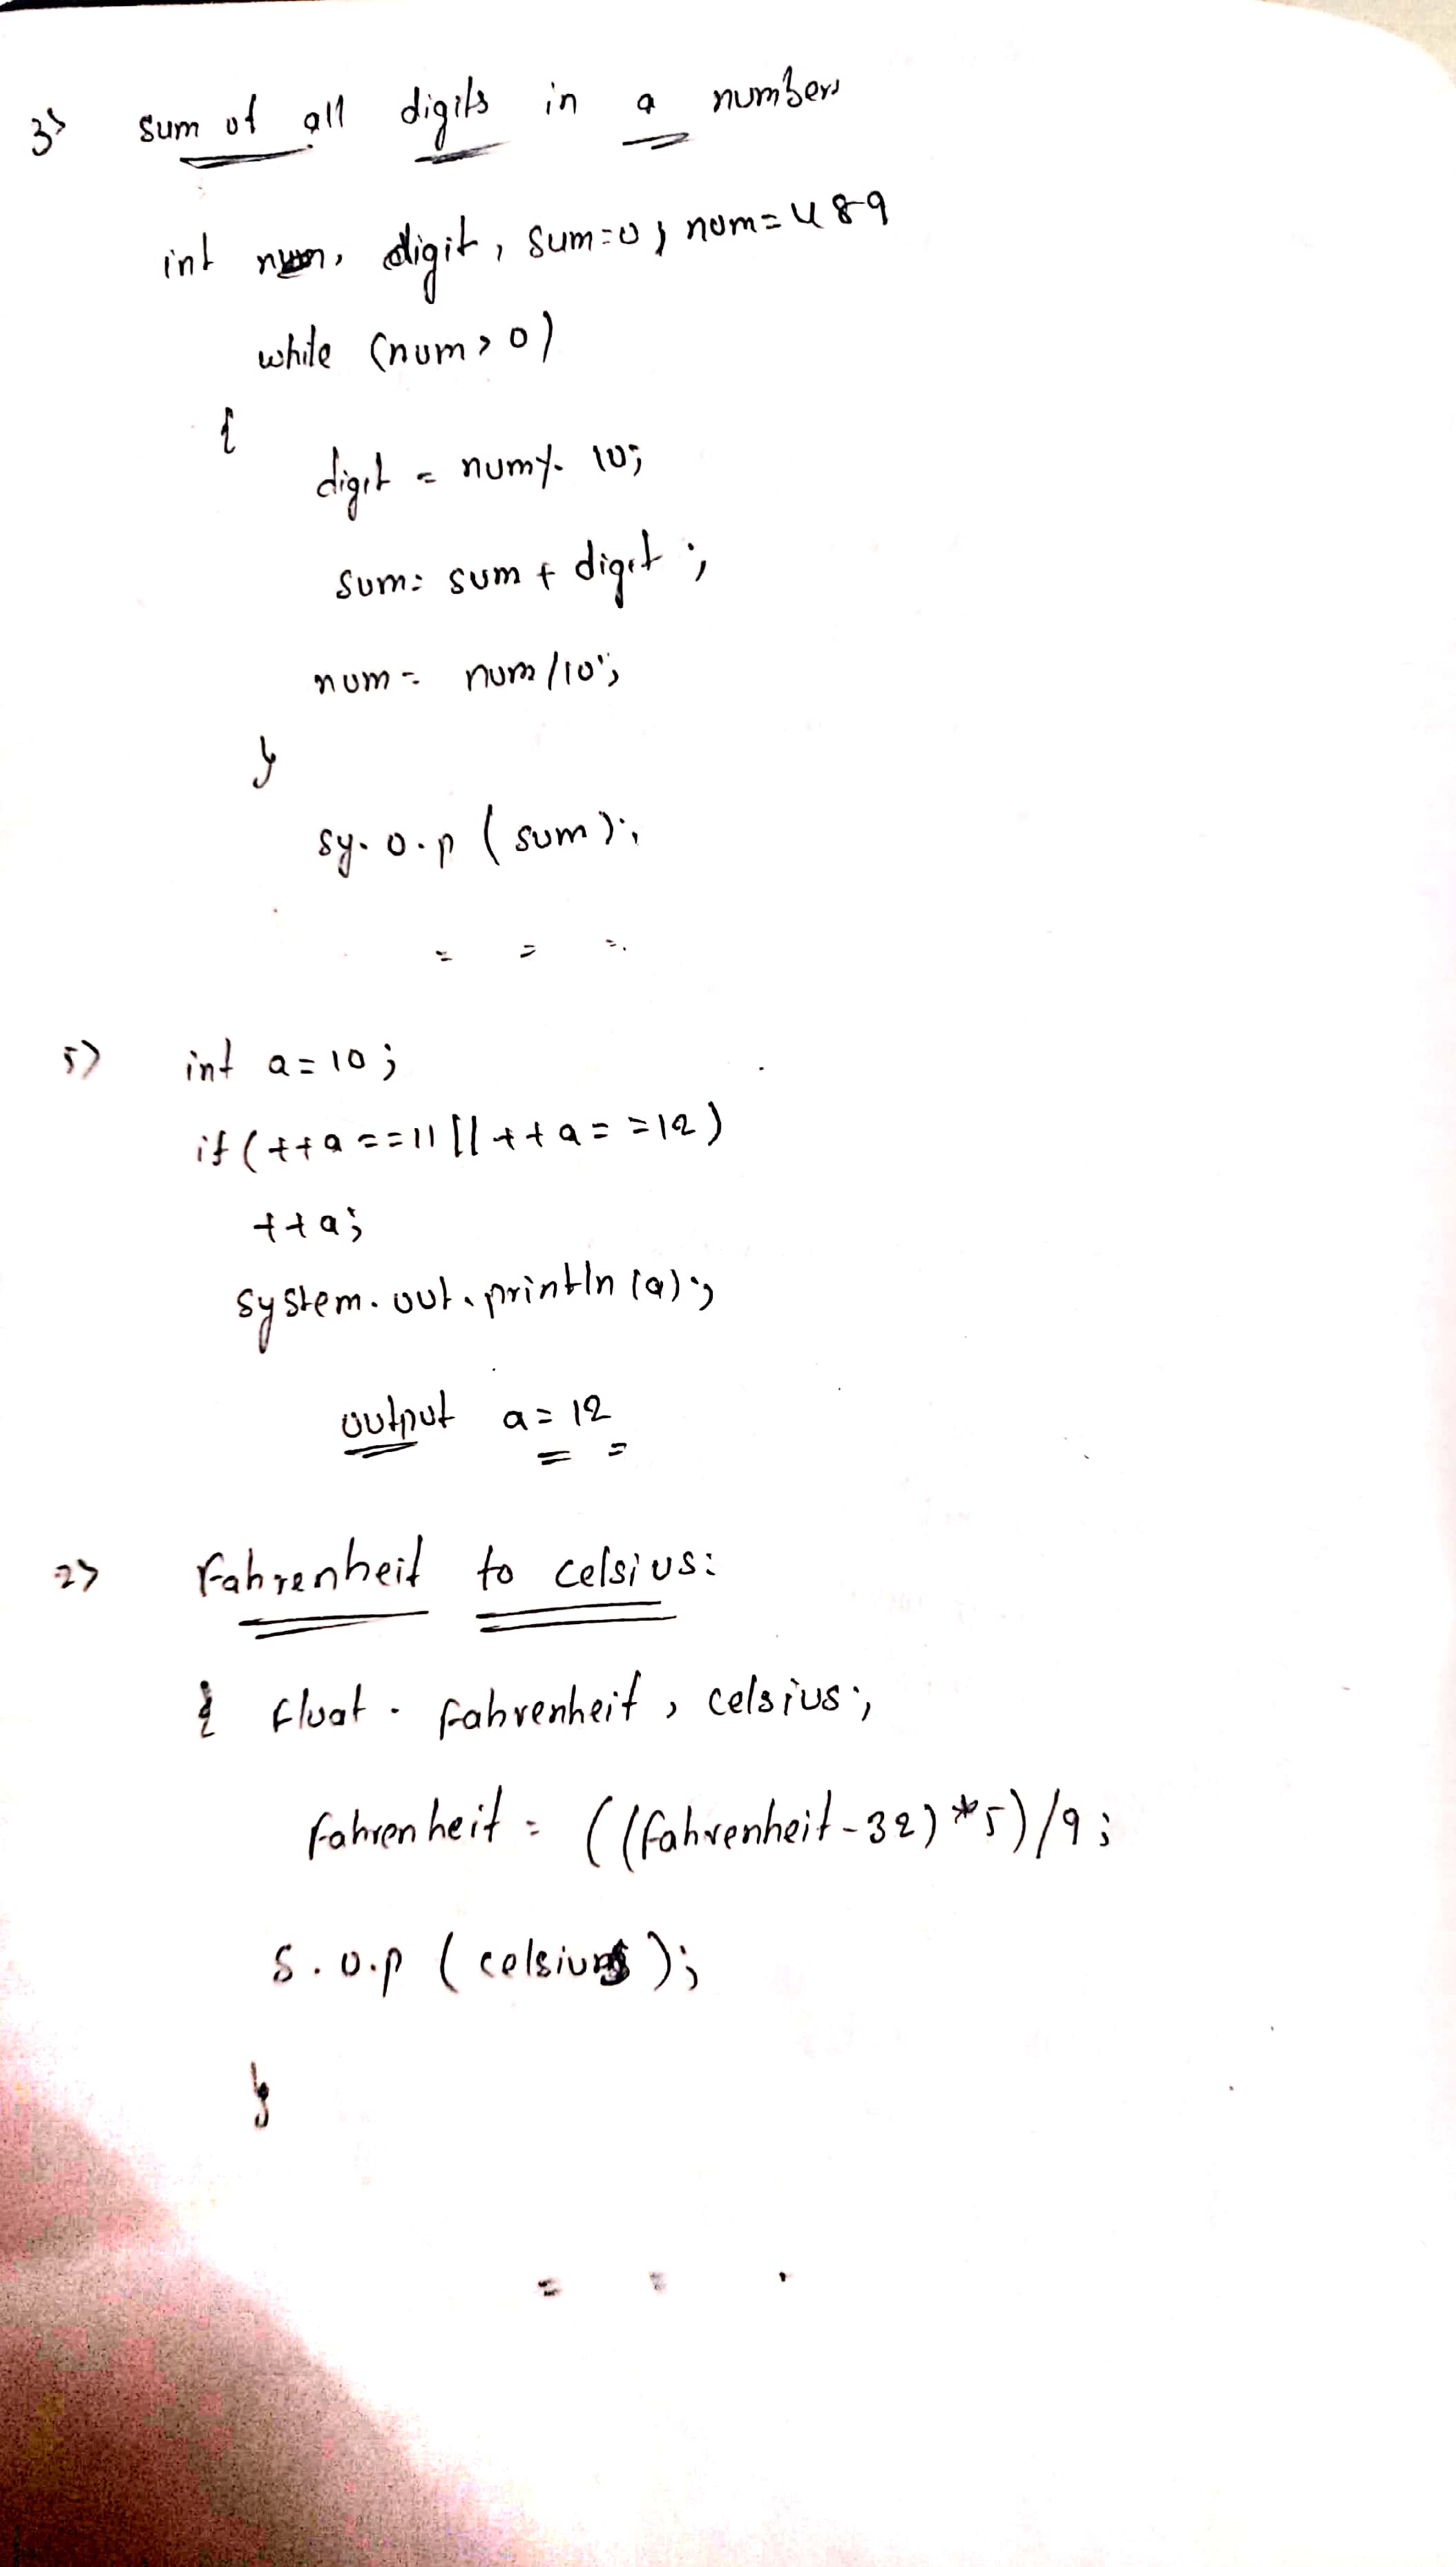 3> sum of all digits in a numbers
int num, digit, sum=0; num=489
while (num>0)
{
digit = num% 10;
sum= sum + digit;
num= num/10;
}
sy.o.p (sum);
5> int a=10;
if(++a==11||++a==12)
++a;
system.out.println(a);
output a=12
2> Fahrenheit to celsius:
{ float. fahrenheit, celsius;
fahrenheit = ((fahrenheit-32)*5)/9;
S.o.p (celsius);
}